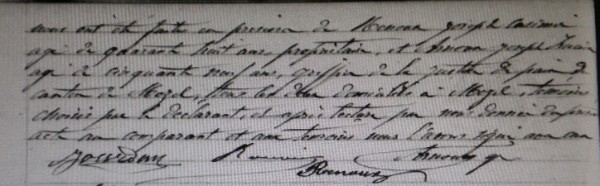 nous ont été faite en presence de Renoux joseph Casimir
agé de quarante huit ans, propriétaire, et Arnoux joseph
agé de cinquante neuf ans, greffier de la justice de paix du
canton de Mezel, tous les deux domiciliés à Mezel, temoins
choisis par le déclarant, et après lecture par nous donnée du présent
acte au comparant et aux temoins nous l'avons signé avec eux
Jourdan Arnoux gr